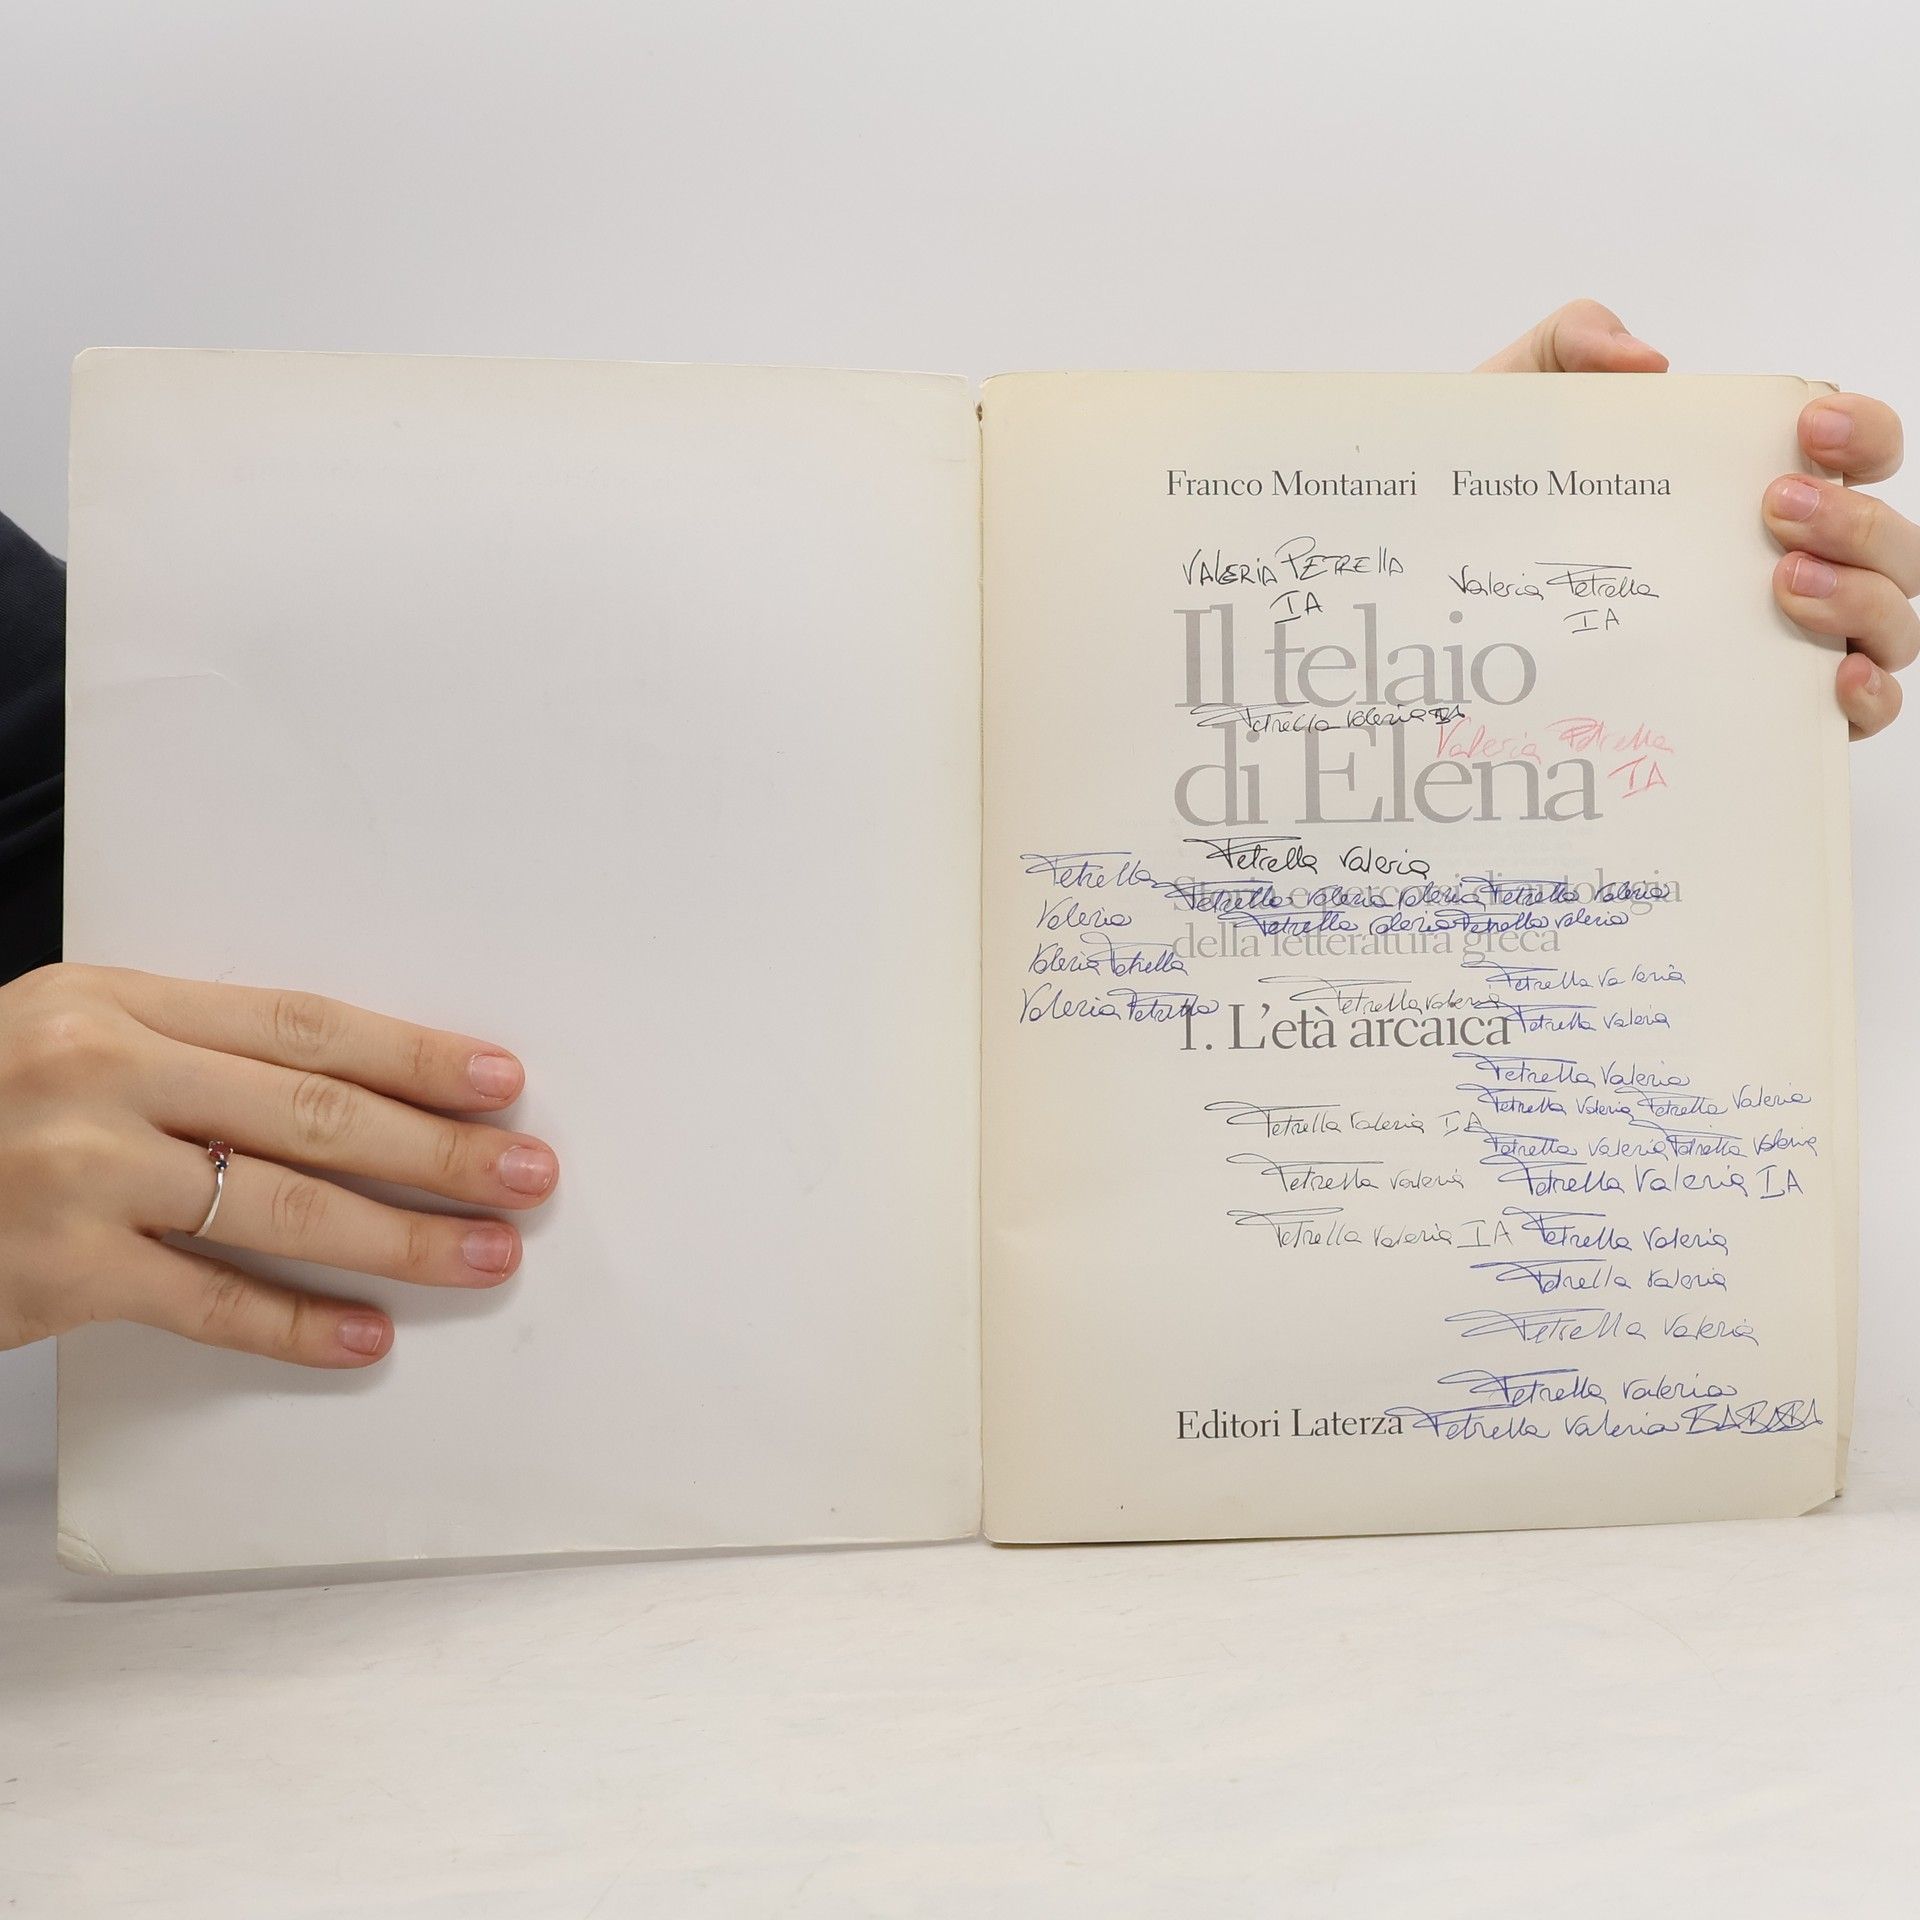 Franco Montanari Fausto Montana
VALERIA PETRELLA
IA
Valeria Petrella
IA
Il telaio
Petrella Valeria IA
Valeria Petrella
IA
di Elena
Petrella Valeria
Petrella
Valeria
Valeria Petrella
Valeria Petrella
Storia e percorsi di antologia
Petrella Valeria Valeria Petrella Valeria
Petrella Valeria Petrella Valeria
della letteratura greca
Petrella Valeria
Petrella Valeria
Petrella Valeria
1. L'età arcaica
Petrella Valeria
Petrella Valeria Petrella Valeria
Petrella Valeria IA
Petrella Valeria Petrella Valeria
Petrella Valeria
Petrella Valeria IA
Petrella Valeria IA
Petrella Valeria
Petrella Valeria
Petrella Valeria
Petrella Valeria
Editori Laterza
Petrella Valeria